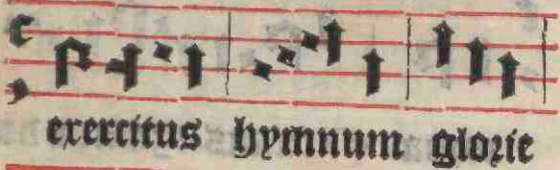 exercitus hymnum glorie